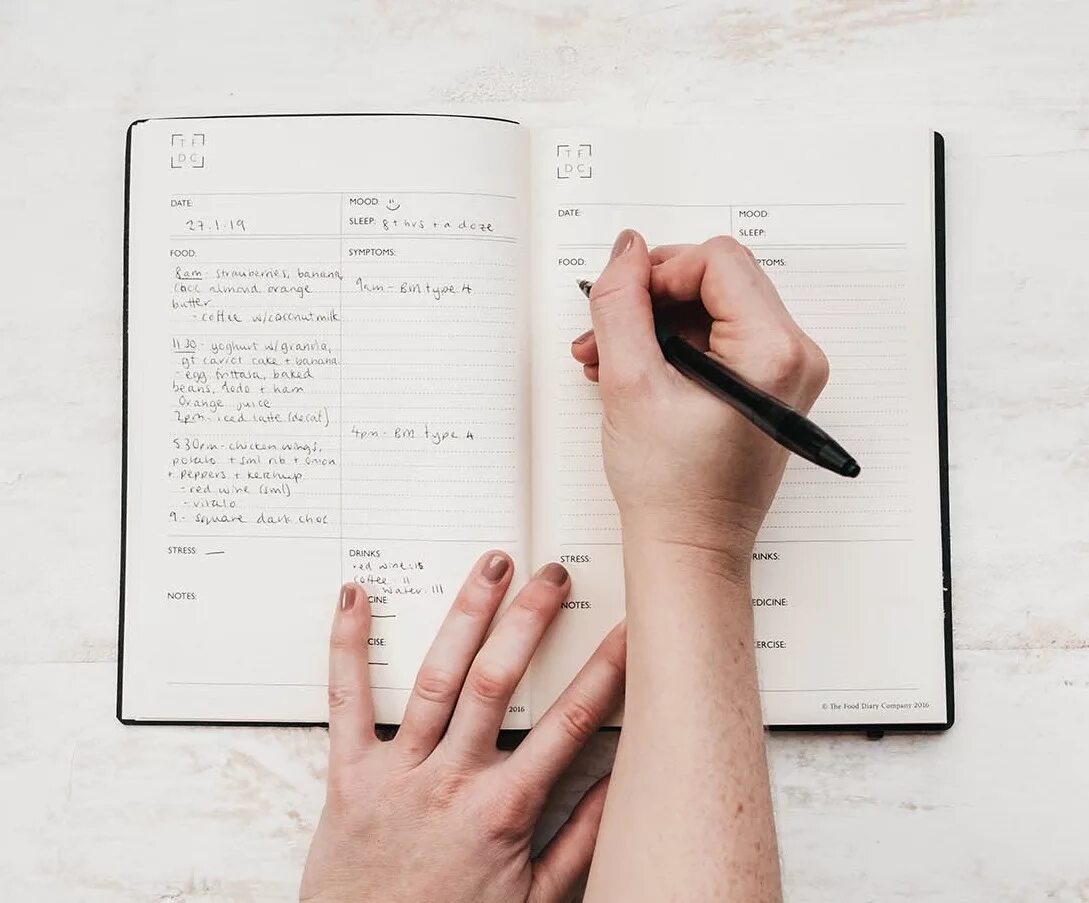 TF
DC
DATE: 27.1.19
MOOD:
SLEEP: 8+hrs + a doze
FOOD:
8am - strawberries, banana,
choc almond orange
butter
- coffee w/coconut milk
11.30 - yoghurt w/granola,
gf carrot cake + banana
- egg frittata, baked
beans, + ham
Orange juice
2pm - iced latte (decaf)
5.30pm - chicken wings,
potato + sml rib + onion
+ peppers + ketchup
- red wine (sml)
9 - square dark choc
SYMPTOMS:
9am - BM type 4
4pm - BM type 4
STRESS: —
NOTES:
DRINKS
red wine:
coffee: II
water: III
CINE:
CISE:
2016
TF
DC
DATE:
MOOD:
SLEEP:
FOOD:
PTOMS:
STRESS:
NOTES:
RINKS:
EDICINE:
ERCISE:
© The Food Diary Company 2016